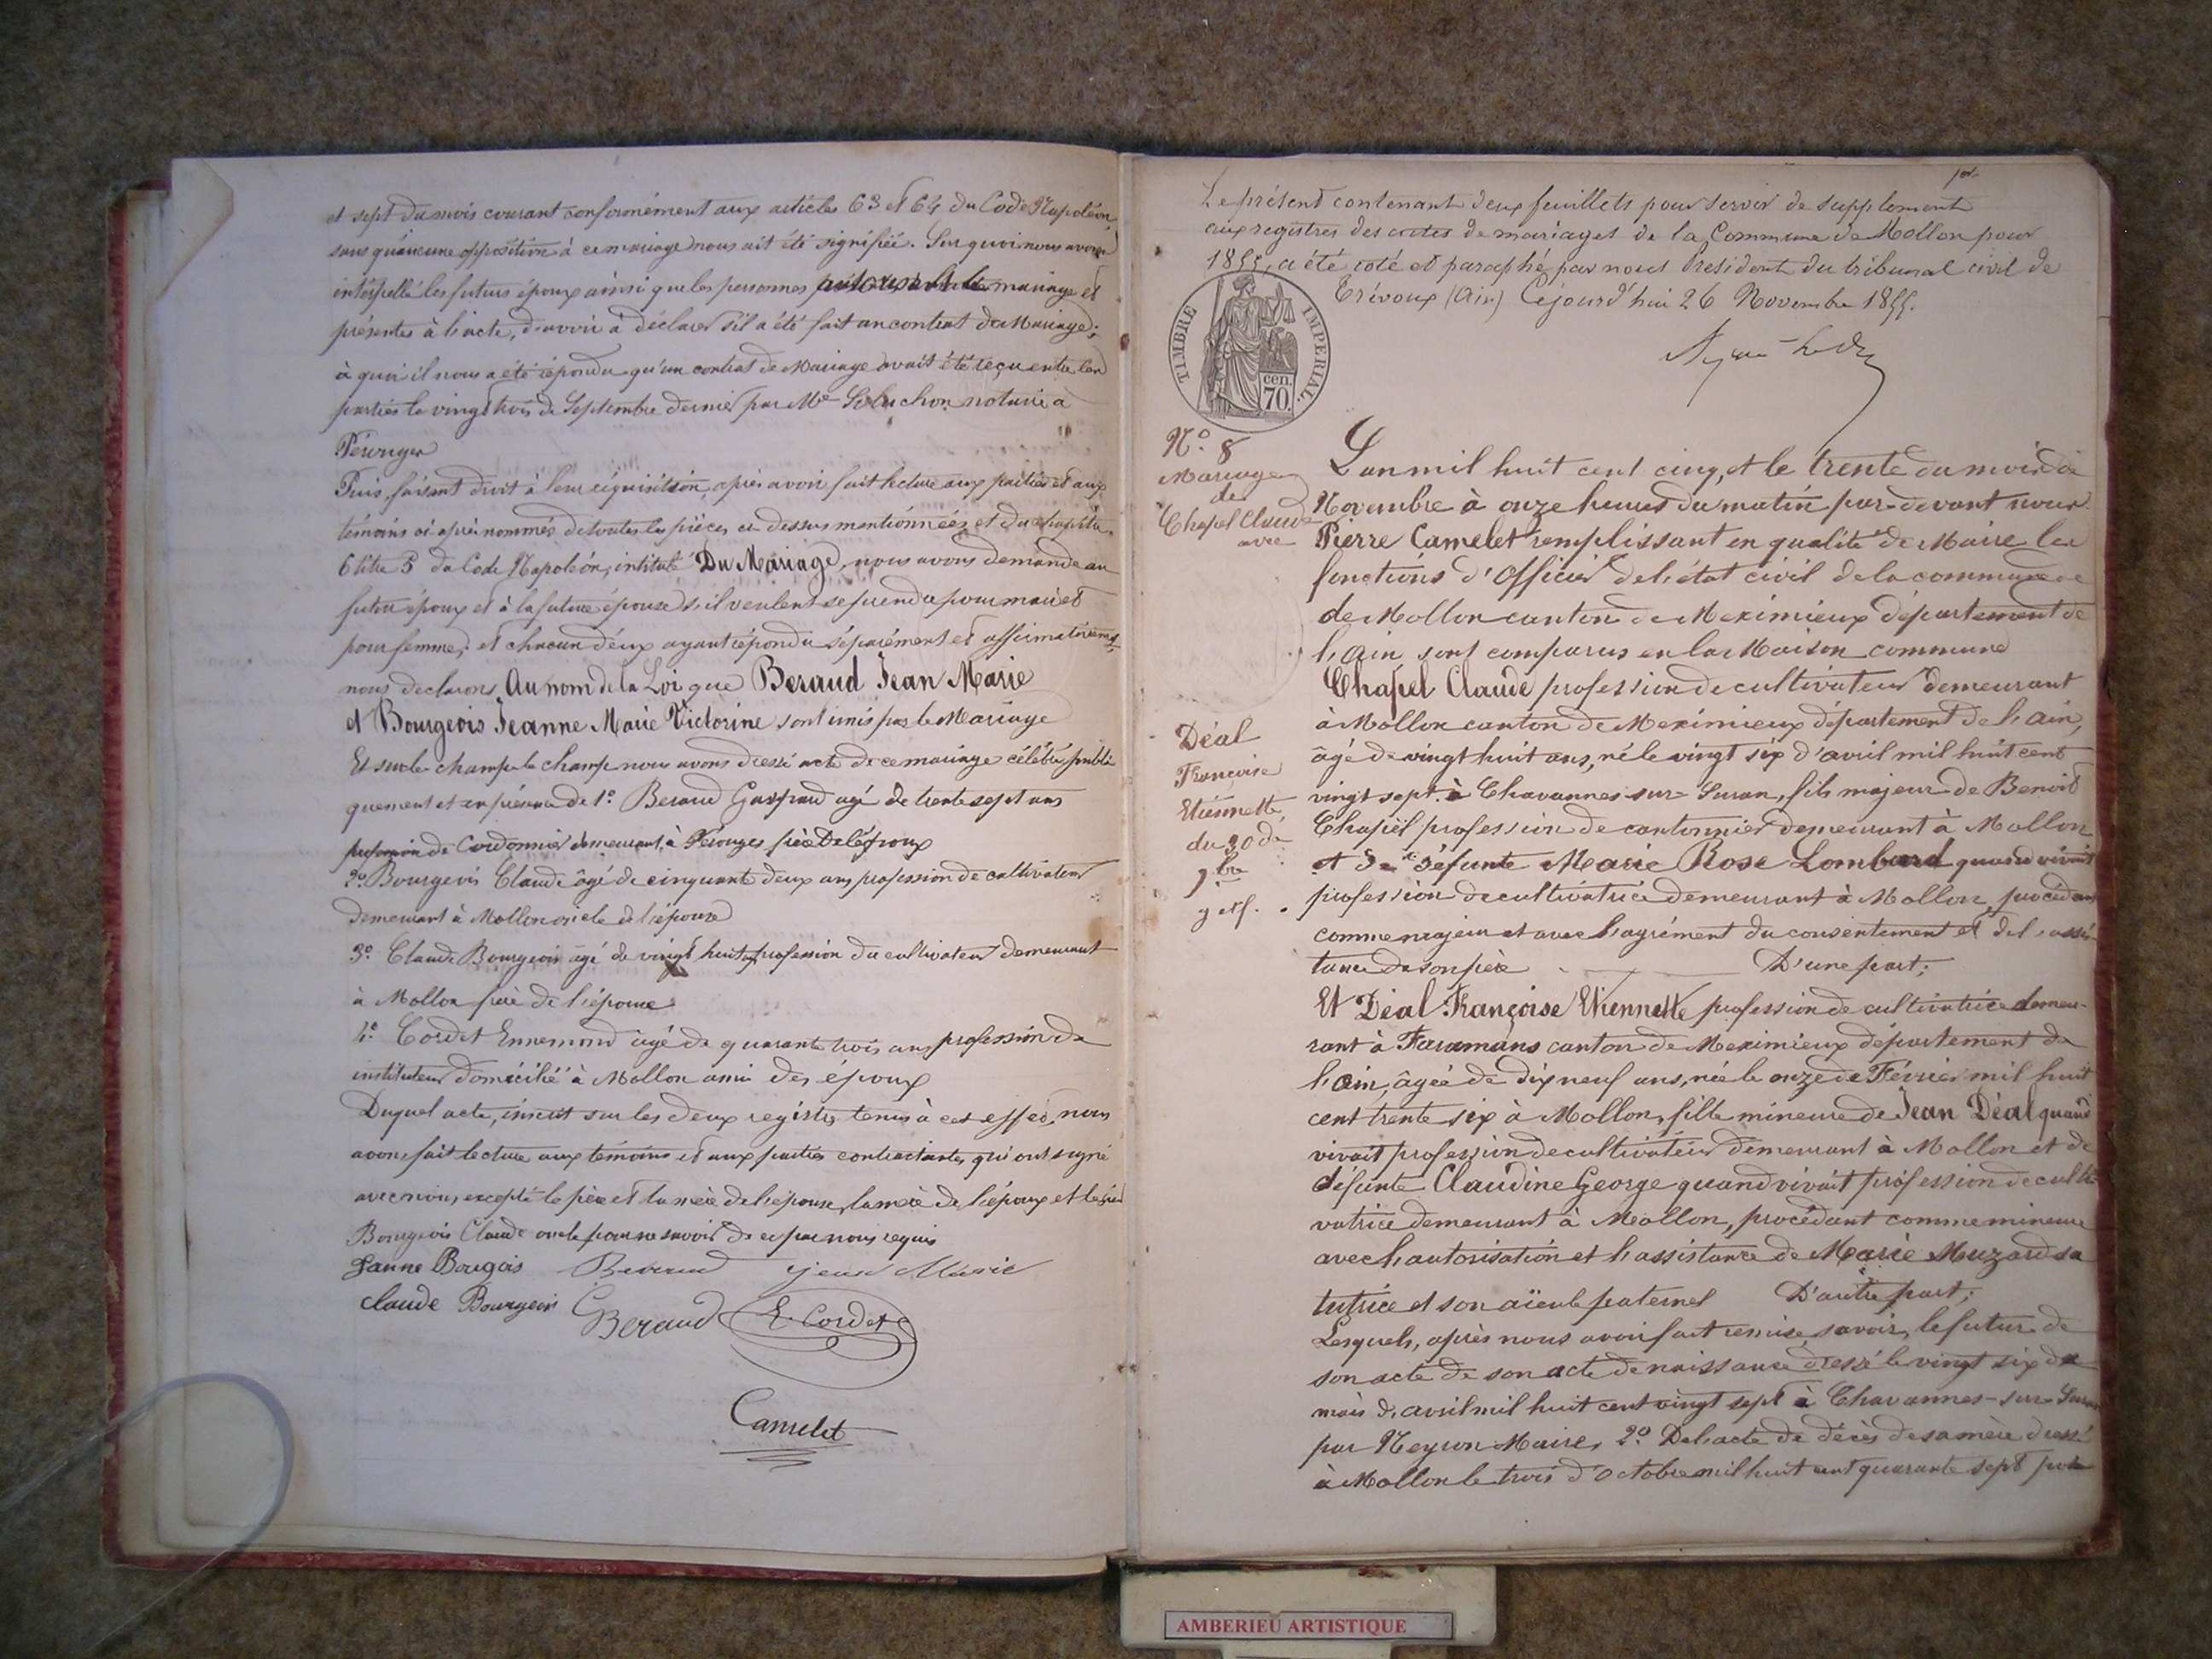 et sept du mois courant conformément aux articles 63 et 64 du Code Napoléon,
sans qu'aucune opposition à ce mariage nous ait été signifiée. Sur quoi nous avons
interpellé les futurs époux ainsi que les personnes autorisant le mariage et
présentes à l'acte, d'avoir à déclarer s'il a été fait un contrat de Mariage;
à quoi il nous a été répondu qu'un contrat de Mariage avait été reçu entre les
parties le vingt trois de Septembre dernier par Me notaire à
Pérouges
Puis, faisant droit à leur réquisition, après avoir fait lecture aux parties et aux
témoins ci après nommés de toutes les pièces ci dessus mentionnées et du chapitre
6 titre 5 du Code Napoléon, intitulé Du Mariage, nous avons demandé au
futur époux et à la future épouse s'il veulent se prendre pour mari et
pour femme; et chacun d'eux ayant répondu séparément et affirmativement
nous declarons Au nom de la Loi que Beraud Jean Marie
et Bourgeois Jeanne Marie Victorine sont unis par le Mariage
Et sur le champ le champ nous avons dressé acte de ce mariage célébré publi
quement et en présence de 1° Beraud Gaspard agé de trente sept ans
profession de Cordonnier demeurant à Pérouges frère De l'époux
2° Bourgeois Claude âgé de cinquante deux ans profession de cultivateur
demeurant à Mollon oncle de l'épouse
3° Claude Bourgeois âgé de vingt huit profession de cultivateur demeurant
à Mollon frère de l'épouse
4° Cordet Ennemond âgé de quarante trois ans profession de
instituteur domicilié à Mollon ami des époux
Duquel acte, inscrit sur les deux registres tenus à cet effet, nous
avons fait lecture aux témoins et aux parties contractantes, qui ont signé
avec nous, excepté le père et la mère de l'épouse, la mère de l'époux et le sieur
Bourgeois Claude oncle pour ne savoir de ce par nous requis
Janne Bougois Beraud jean Marie
claude Bourgeois G Beraud E. Cordet
Camelet
Le présent contenant deux feuillets pour servir de supplement
aux registres des actes de mariages de la Commune de Mollon pour
1855, a été coté et paraphé par nous Président du tribunal civil de
Trévoux (Ain) Cejourd'hui 26 Novembre 1855.
TIMBRE IMPERIAL.
70 cen.
N° 8
Mariage
de
Chapel Claude
avec
Déal
Françoise
Etiennette,
du 30 de
9bre
L'an mil huit cent cinq, et le trente du mois de
Novembre à onze heures du matin par-devant nous
Pierre Camelet remplissant en qualité de Maire les
fonctions d'Officier de l'état civil de la commune de
de Mollon canton de Meximieux département de
l'Ain, sont comparus en la Maison commune
Chapel Claude profession de cultivateur demeurant
à Mollon canton de Meximieux département de l'Ain,
âgé de vingt huit ans, né le vingt six d'avril mil huit cent
vingt sept à Chavannes-sur-Suran, fils majeur de Benoit
Chapel profession de cantonnier demeurant à Mollon
et de défunte Marie Rose Lombard quand vivait
profession de cultivatrice demeurant à Mollon, procédant
comme majeur et avec l'agrément du consentement et de l'assis
tance de son père D'une part;
Et Déal Françoise Etiennette profession de cultivatrice demeu-
rant à Faramans canton de Meximieux département de
l'Ain, âgée de dix neuf ans, née le onze de Février mil huit
cent trente six à Mollon, fille mineure de Jean Déal quand
vivait profession de cultivateur demeurant à Mollon et de
défunte Claudine George quand vivait profession de culti
vatrice demeurant à Mollon, procédant comme mineure
avec l'autorisation et l'assistance de Marie Muzard sa
tutrice et son aïeule paternel D'autre part;
Lesquels, après nous avoir fait remise, savoir, le future de
son acte de son acte de naissance dressé le vingt six de
mois d'avril mil huit cent vingt sept à Chavannes-sur-Suran
par Neyron Maire, 2° De l'acte de décès de sa mère dressé
à Mollon le trois d'Octobre mil huit cent quarante sept par
AMBERIEU ARTISTIQUE